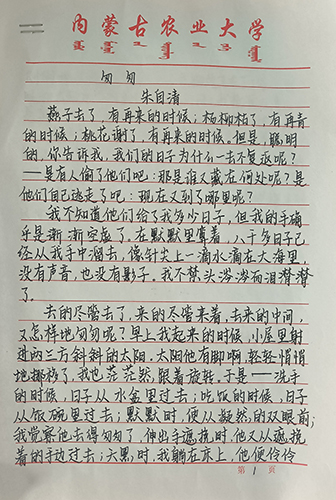 内蒙古农业大学
匆匆
朱自清
燕子去了，有再来的时候；杨柳枯了，有再青
的时候；桃花谢了，有再来的时候。但是，聪明
的，你告诉我，我们的日子为什么一去不复返呢？
——是有人偷了他们吧：那是谁？又藏在何处呢？是
他们自己逃走了吧：现在又到了哪里呢？
我不知道他们给了我多少日子，但我的手确
乎是渐渐空虚了。在默默里算着，八千多日子已
经从我手中溜去，像针尖上一滴水滴在大海里，
没有声音，也没有影子。我不禁头涔涔而泪潸潸
了。
去的尽管去了，来的尽管来着，去来的中间，
又怎样地匆匆呢？早上我起来的时候，小屋里射
进两三方斜斜的太阳。太阳他有脚啊，轻轻悄悄
地挪移了，我也茫茫然跟着旋转。于是——洗手
的时候，日子从水盆里过去；吃饭的时候，日子
从饭碗里过去；默默时，便从凝然的双眼前；
我觉察他去得匆匆了，伸出手遮挽时，他又从遮挽
着的手边过去；天黑时，我躺在床上，他便伶伶
第 1 页